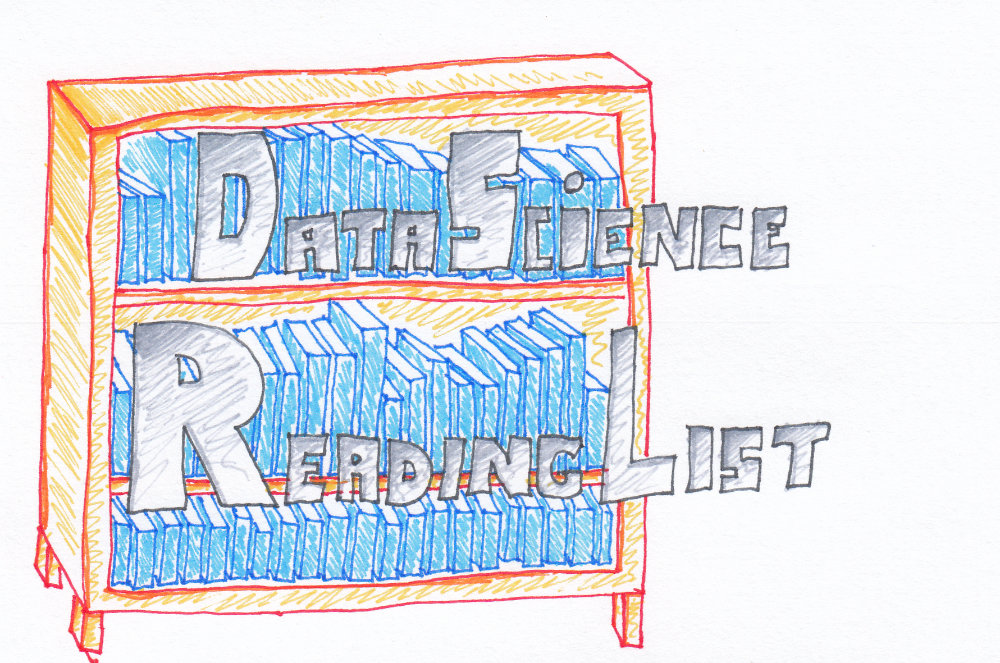 Data Science
Reading List